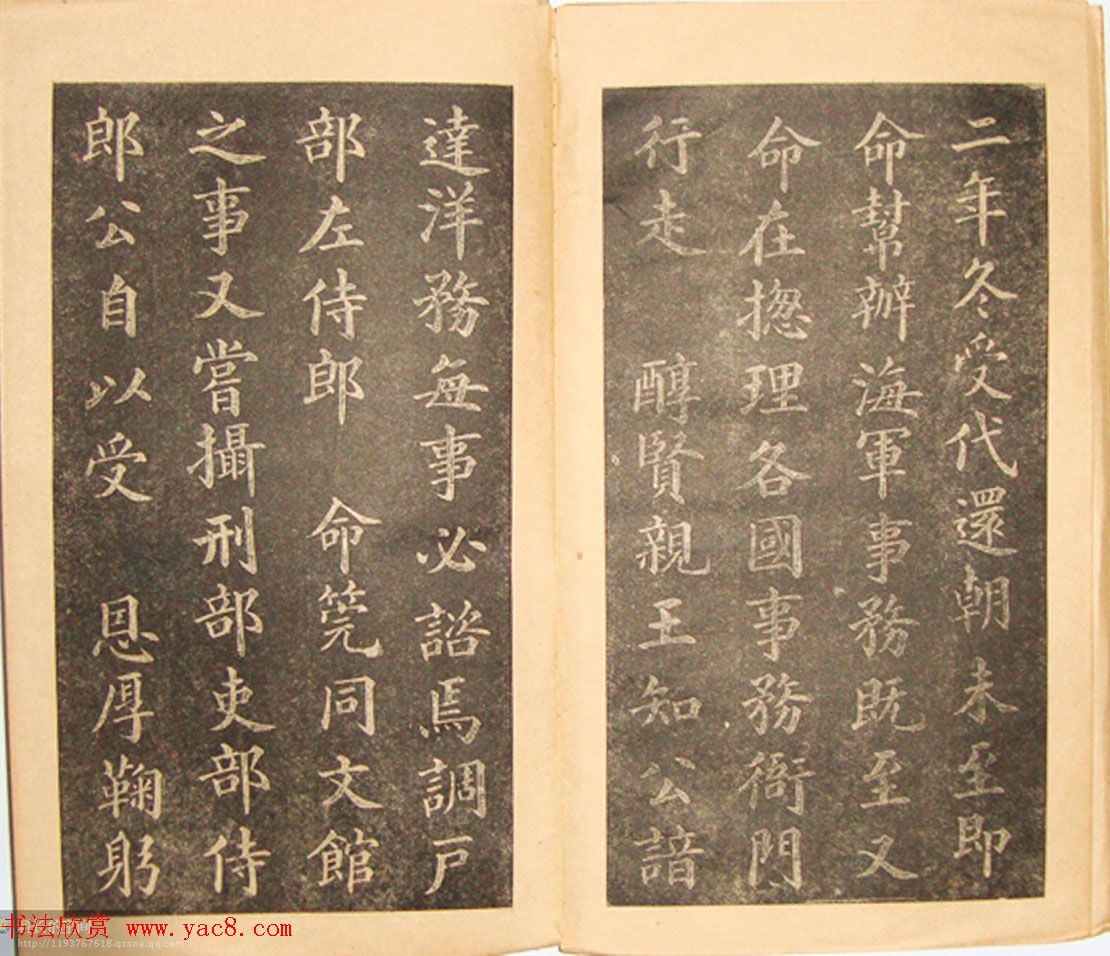 二年冬受代還朝未至即
命幫辦海軍事務既至又
命在揔理各國事務衙門
行走　醇賢親王知公諳
達洋務每事必諮焉調戶
部左侍郎　命筦同文館
之事又嘗攝刑部吏部侍
郎公自以受　恩厚鞠躬
书法欣赏 www.yac8.com
http://1193767618.qzone.qq.com